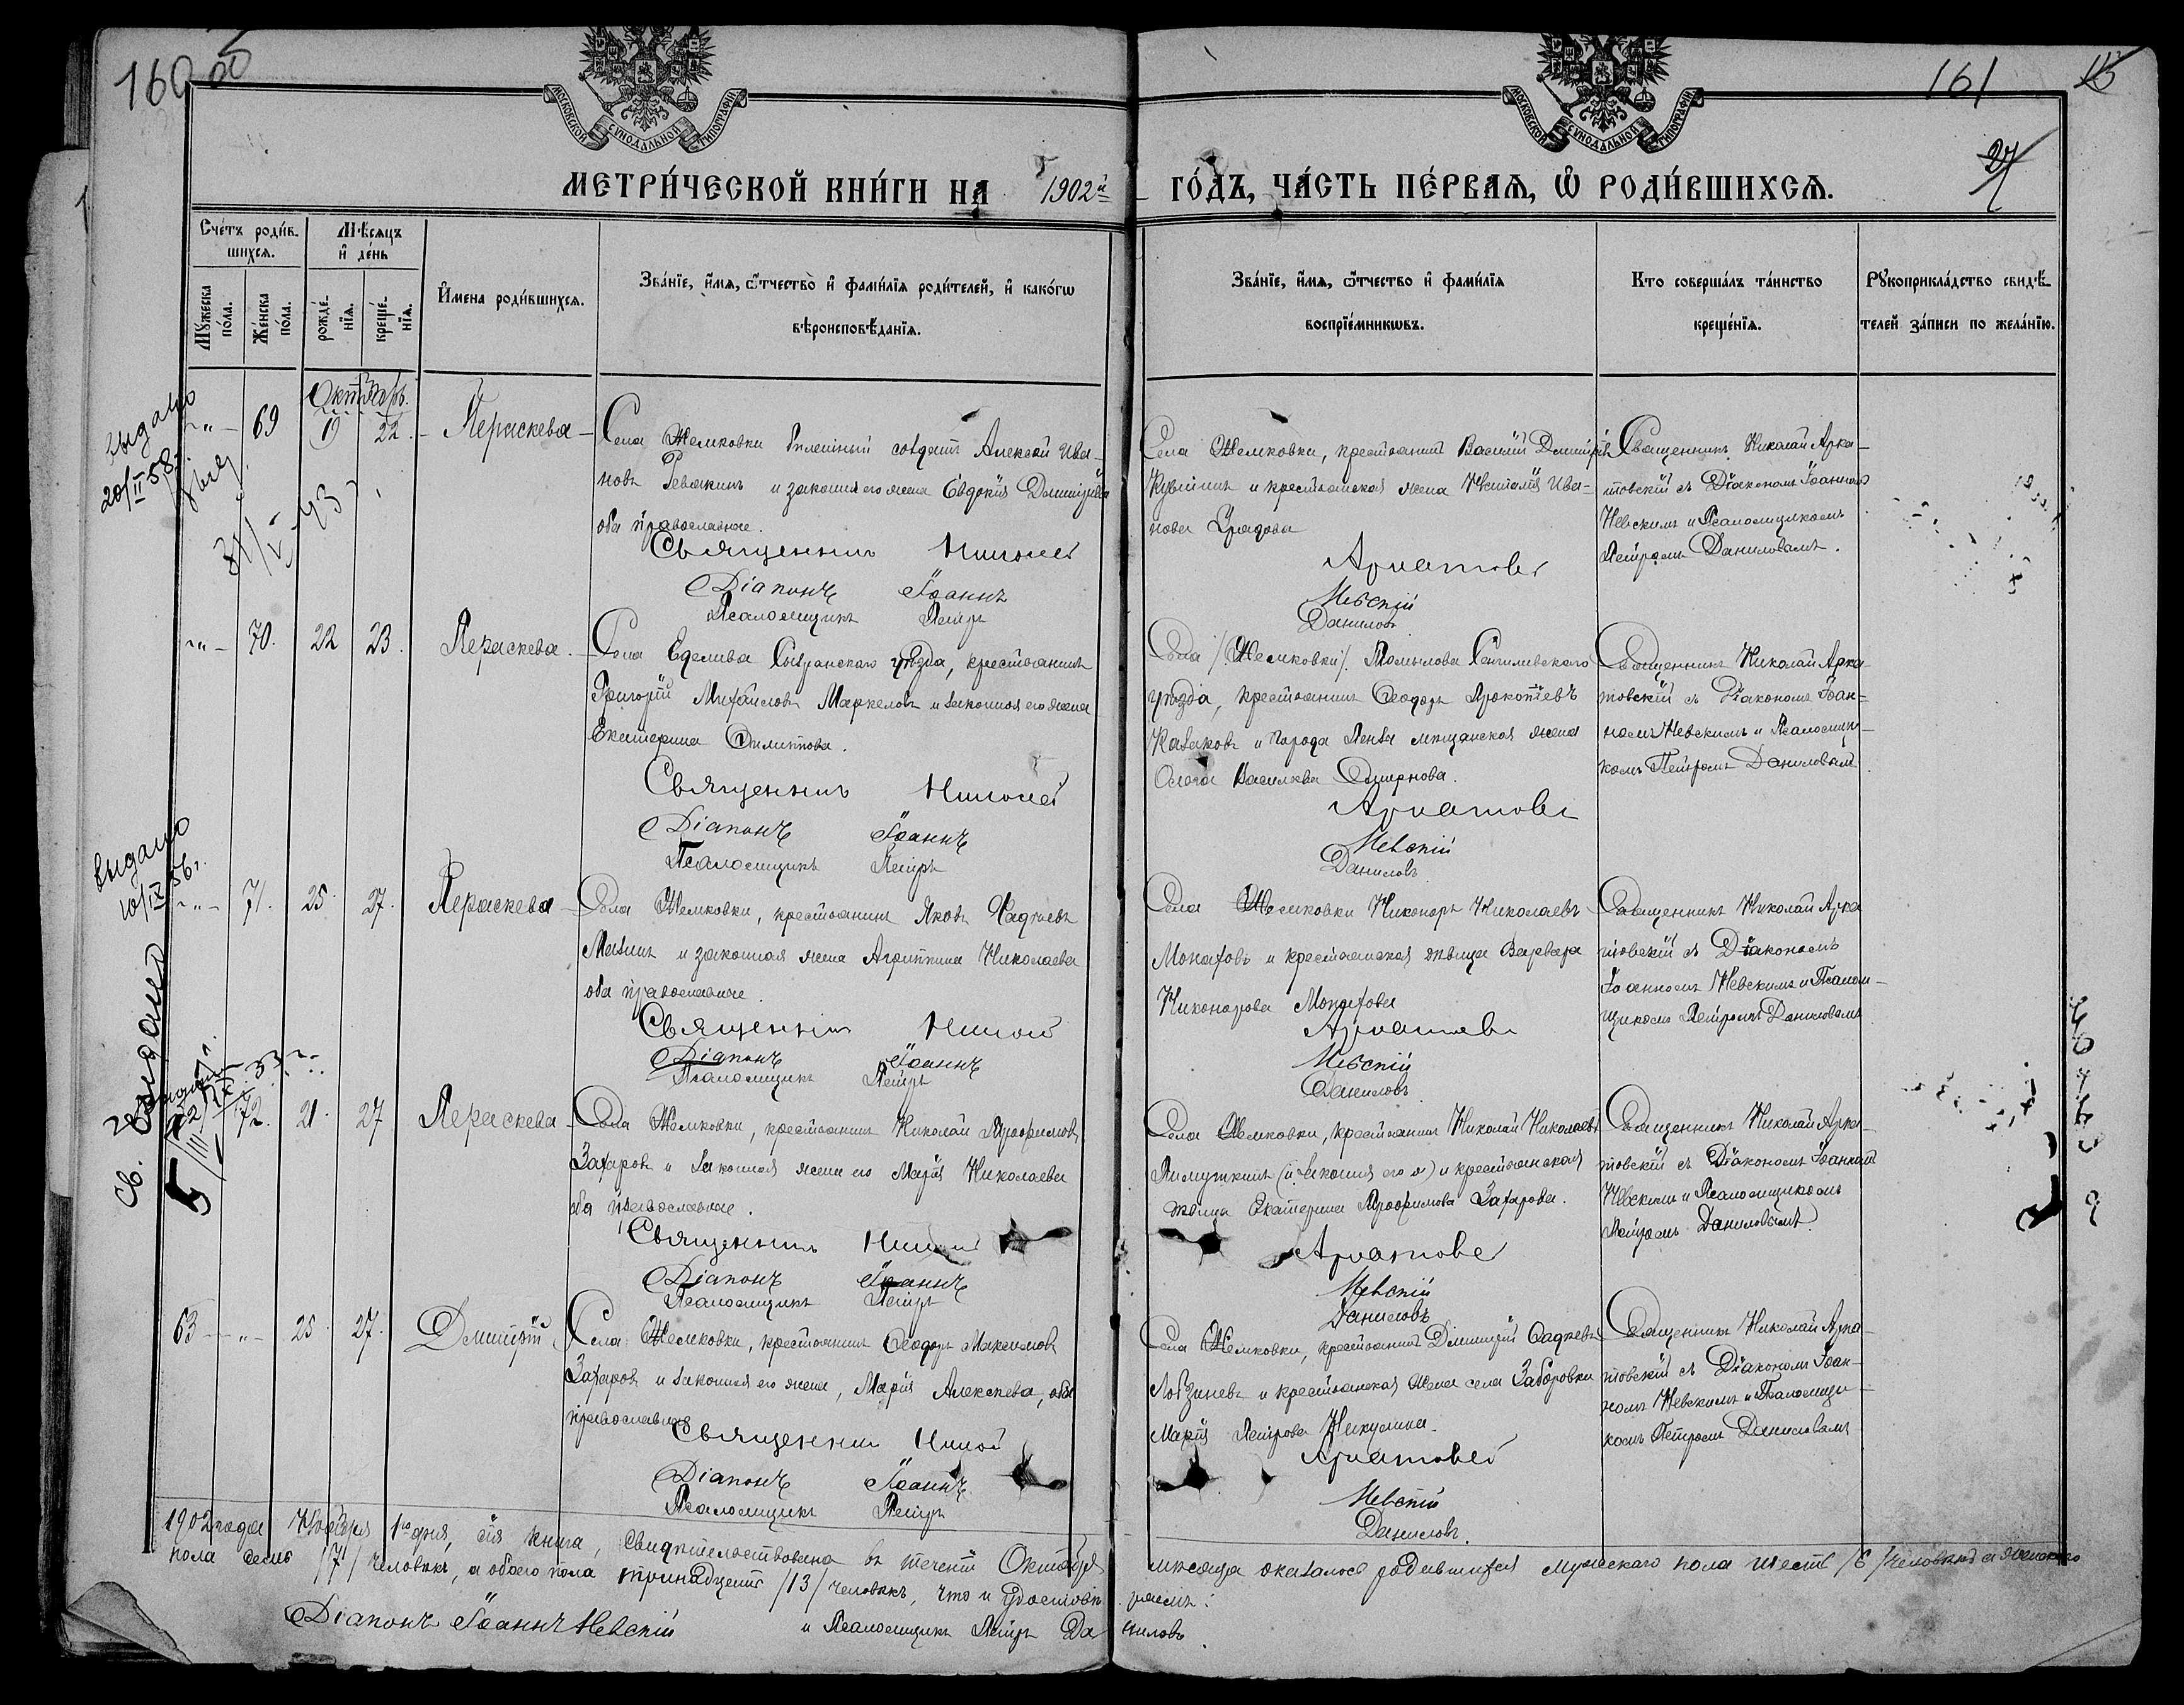 160
161
27
МОСКОВСКОЙ СѴНОДАЛЬНОЙ ТИПОГРАФІИ
МОСКОВСКОЙ СѴНОДАЛЬНОЙ ТИПОГРАФІИ
МЕТРИ́ЧЕСКОЙ КНИ́ГИ НА 1902й ГО́ДЪ, ЧА́СТЬ ПЕ́РВАЯ, Ѡ РОДИ́ВШИХСЯ.
Сче́тъ роди́в-
шихся.
Мꙋ́жеска по́ла.
Же́нска по́ла.
Мѣ́сяцъ
и де́нь
рожде́-
нїя.
креще́-
нїя.
И҆мена роди́вшихся.
Зва́нїе, и҆́мя, ѻ҆́тчество и҆ фами́лїя роди́телей, и҆ како́гѡ
вѣроисповѣ́данїя.
Зва́нїе, и҆́мя, ѻ҆́тчество и҆ фами́лїя
воспрїе́мникѡвъ.
Кто соверша́лъ та́инство
креще́нїя.
Рꙋкоприкла́дство свидѣ́-
телей за́писи по жела́нїю.
выдано
20/II 58 г.
Октябрь.
-"- 69 19 22. Параскева
Села Жемковки Запасный солдатъ Алексѣй Ива-
новъ Ревякинъ и законная его жена Евдокія Димитріева
оба православные.
Священникъ Николай
Діаконъ Іоаннъ
Псаломщикъ Петръ
Села Жемковки, крестьянинъ Василій Димитріевъ
и крестьянская жена Наталія Ива-
нова
Аркатовскій
Невскій
Даниловъ
Священникъ Николай Арка-
товскій съ Діакономъ Іоанномъ
Невскимъ и Псаломщикомъ
Петромъ Даниловымъ.
-"- 70. 22 23. Параскева.
Села Еделева Сызранскаго уѣзда, крестьянинъ
Григорій Михаиловъ Маркеловъ и законная его жена
Екатерина Филиппова.
Священникъ Николай
Діаконъ Іоаннъ
Псаломщикъ Петръ
Села /Жемковки/ Томылова Сенгилеевскаго
уѣзда, крестьянинъ Ѳеодоръ Прокопіевъ
Казаковъ и города Пензы мѣщанская жена
Ольга Васильева Смирнова.
Аркатовскій
Невскій
Даниловъ
Священникъ Николай Арка-
товскій съ Діакономъ Іоан-
номъ Невскимъ и Псаломщи-
комъ Петромъ Даниловымъ
выдано
10/IX 56 г.
-"- 71. 25. 27. Параскева
Села Жемковки, крестьянинъ Яковъ Ѳаддѣевъ
Мазинъ и законная жена Агриппина Николаева
оба православные.
Священникъ Николай
Діаконъ Іоаннъ
Псаломщикъ Петръ
Села Жемковки Никоноръ Николаевъ
Монаховъ и крестьянская дѣвица Варвара
Никонорова Монахова
Аркатовскій
Невскій
Даниловъ
Священникъ Николай Арка
товскій съ Діакономъ
Іоанномъ Невскимъ и Псалом-
щикомъ Петромъ Даниловымъ
Св. выдано
72. 21. 27 Параскева
Села Жемковки, крестьянинъ Николай Трофимовъ
Захаровъ и законная жена его Марія Николаева
оба православные.
Священникъ Николай
Діаконъ Іоаннъ
Псаломщикъ Петръ
Села Жемковки, крестьянинъ Николай Николаевъ
(и законная его ж) и крестьянская
дѣвица Екатерина Трофимова Захарова.
Аркатовскій
Невскій
Даниловъ
Священникъ Николай Арка-
товскій съ Діакономъ Іоанномъ
Невскимъ и Псаломщикомъ
Петромъ Даниловымъ.
63 -"- 25 27. Димитрій
Села Жемковки, крестьянинъ Ѳеодоръ Максимовъ
Захаровъ и законная его жена, Марія Алексѣева, оба
православные
Священникъ Николай
Діаконъ Іоаннъ
Псаломщикъ Петръ
Села Жемковки, крестьянинъ Димитрій Ѳаддѣевъ
Лобзиневъ и крестьянская жена села Заборовки
Марія Петрова Никулина.
Аркатовскій
Невскій
Даниловъ.
Священникъ Николай Арка-
товскій съ Діакономъ Іоан-
номъ Невскимъ и Псаломщи-
комъ Петромъ Даниловымъ
1902 года Ноября 1го дня, сія книга, свидѣтельствована въ теченіи Октября мѣсяца оказалось родившихся мужескаго пола шесть /6/ человѣкъ а женскаго
пола семь /7/ человѣкъ, а обоего пола тринадцать /13/ человѣкъ, что и удостовѣряемъ:
Діаконъ Іоаннъ Невскій и Псаломщикъ Петръ Даниловъ.